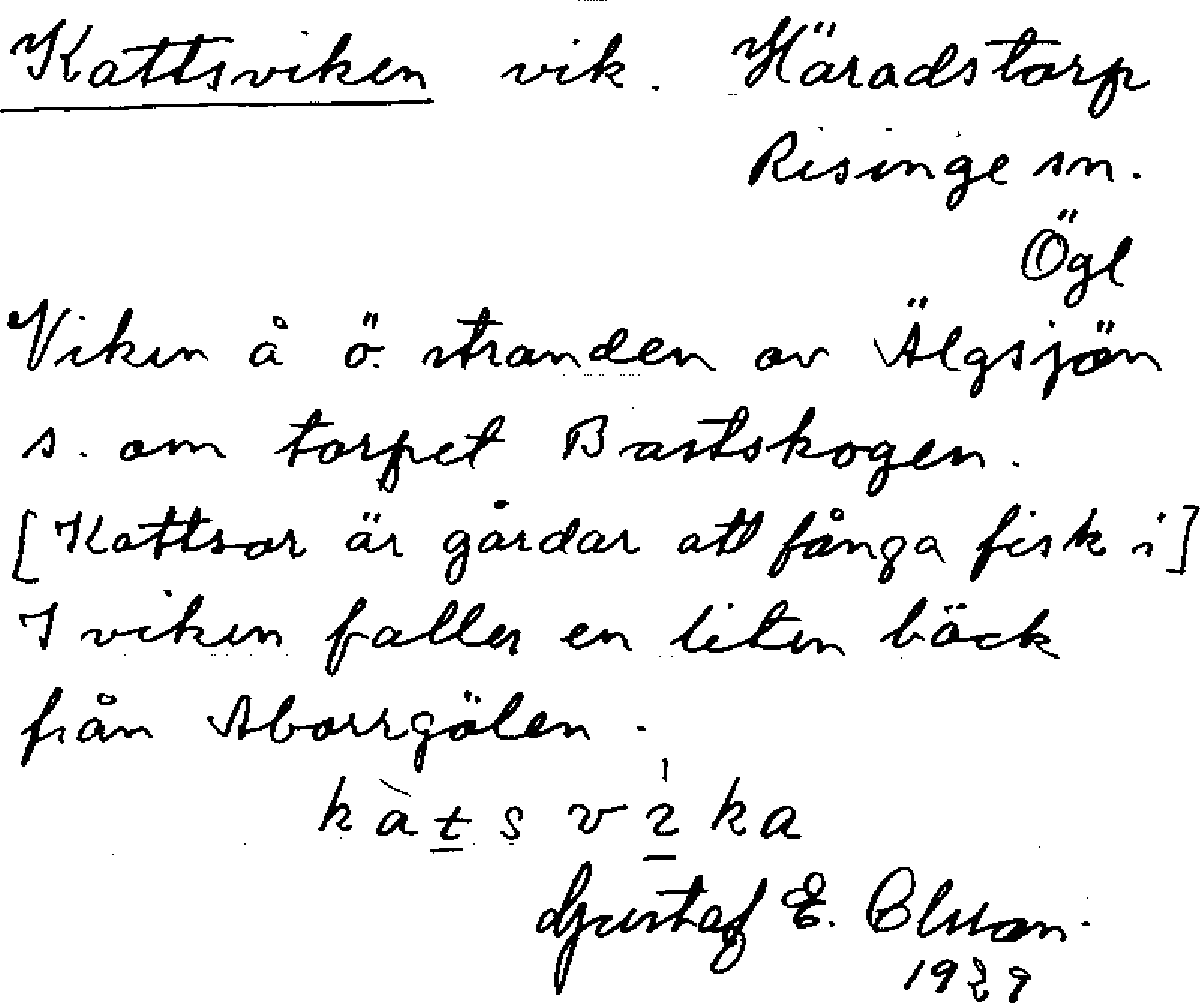 Kattsviken vik. Häradstorp
Risinge sn.
Ögl
Viken å ö. stranden av Älgsjön
s. om torpet Bastskogen.
[Kattsor är gårdar att fånga fisk i]
I viken faller en liten bäck
från Aborrgölen.
kàtsvika
Gustaf E. Olsson.